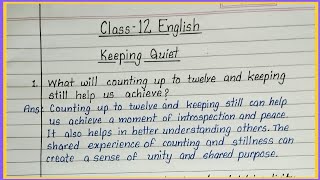 Class-12 English
Keeping Quiet
1. What will counting up to twelve and keeping
still help us achieve?
Ans: Counting up to twelve and keeping still can help
us achieve a moment of introspection and peace.
It also helps in better understanding others. The
shared experience of counting and stillness can
create a sense of unity and shared purpose.